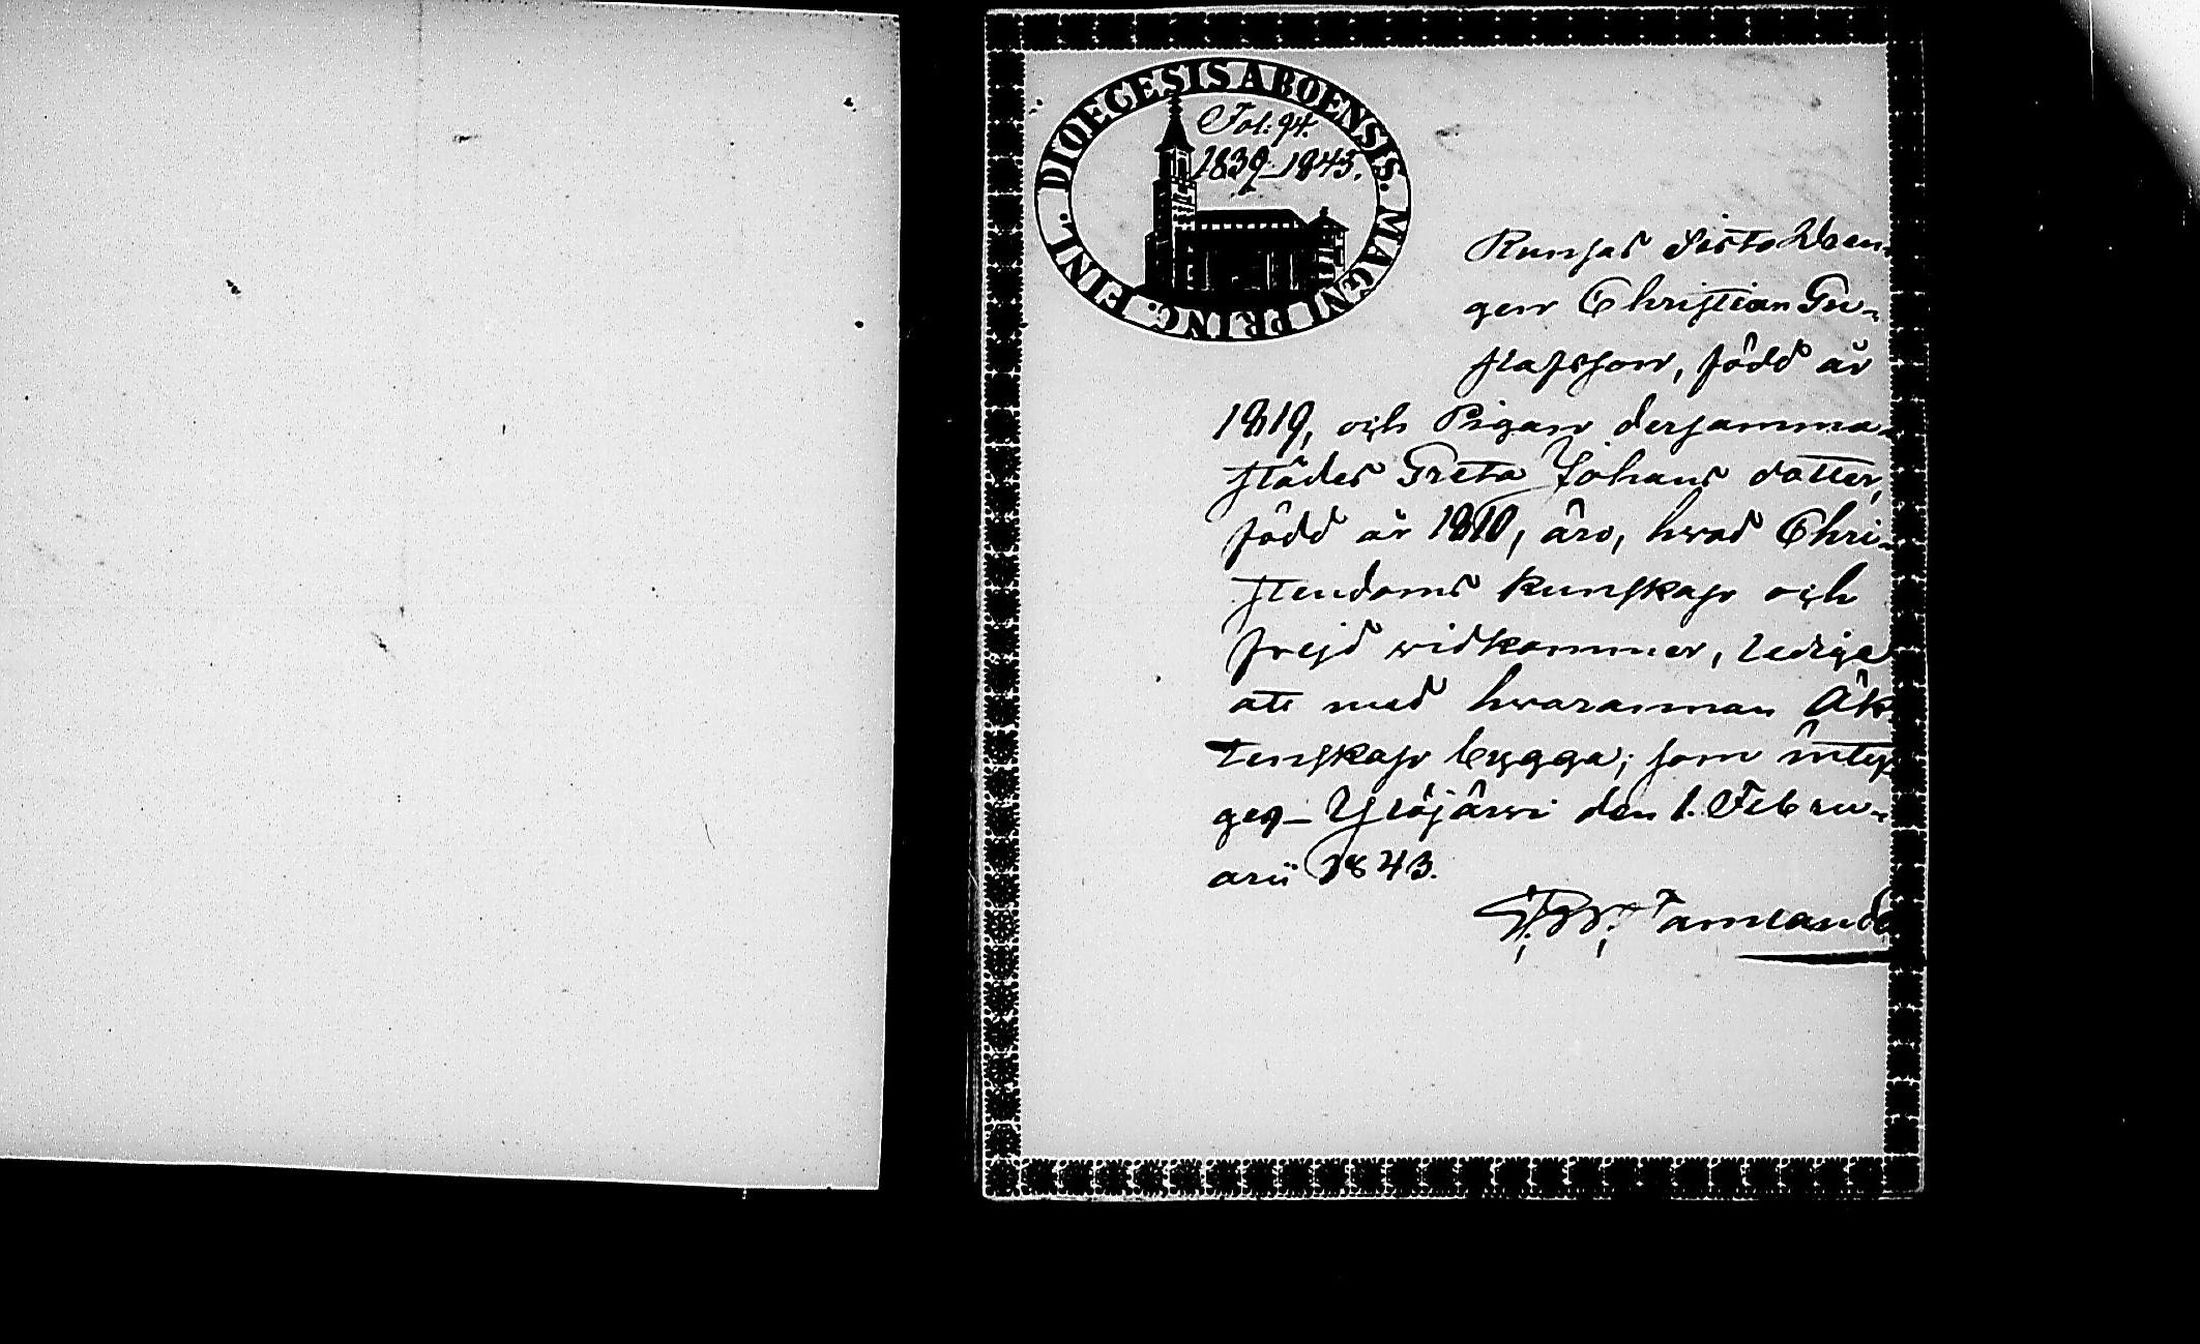 DIOECESIS ABOENSIS. MAGNI PRINC. FINL.
Fol: 94.
1839–1845.
Runsas
gen Christian Gu-
stafsson, född år
1819, och Pigan dersamma-
städes Greta Johans dotter,
född år 1810, äro, hwad Chri-
stendoms kunskap och
frejd widkommer, lediga
att med hwarannan Äk-
tenskap bygga; som inty-
gas – Ylöjärwi den 1. Febru-
arii 1843.